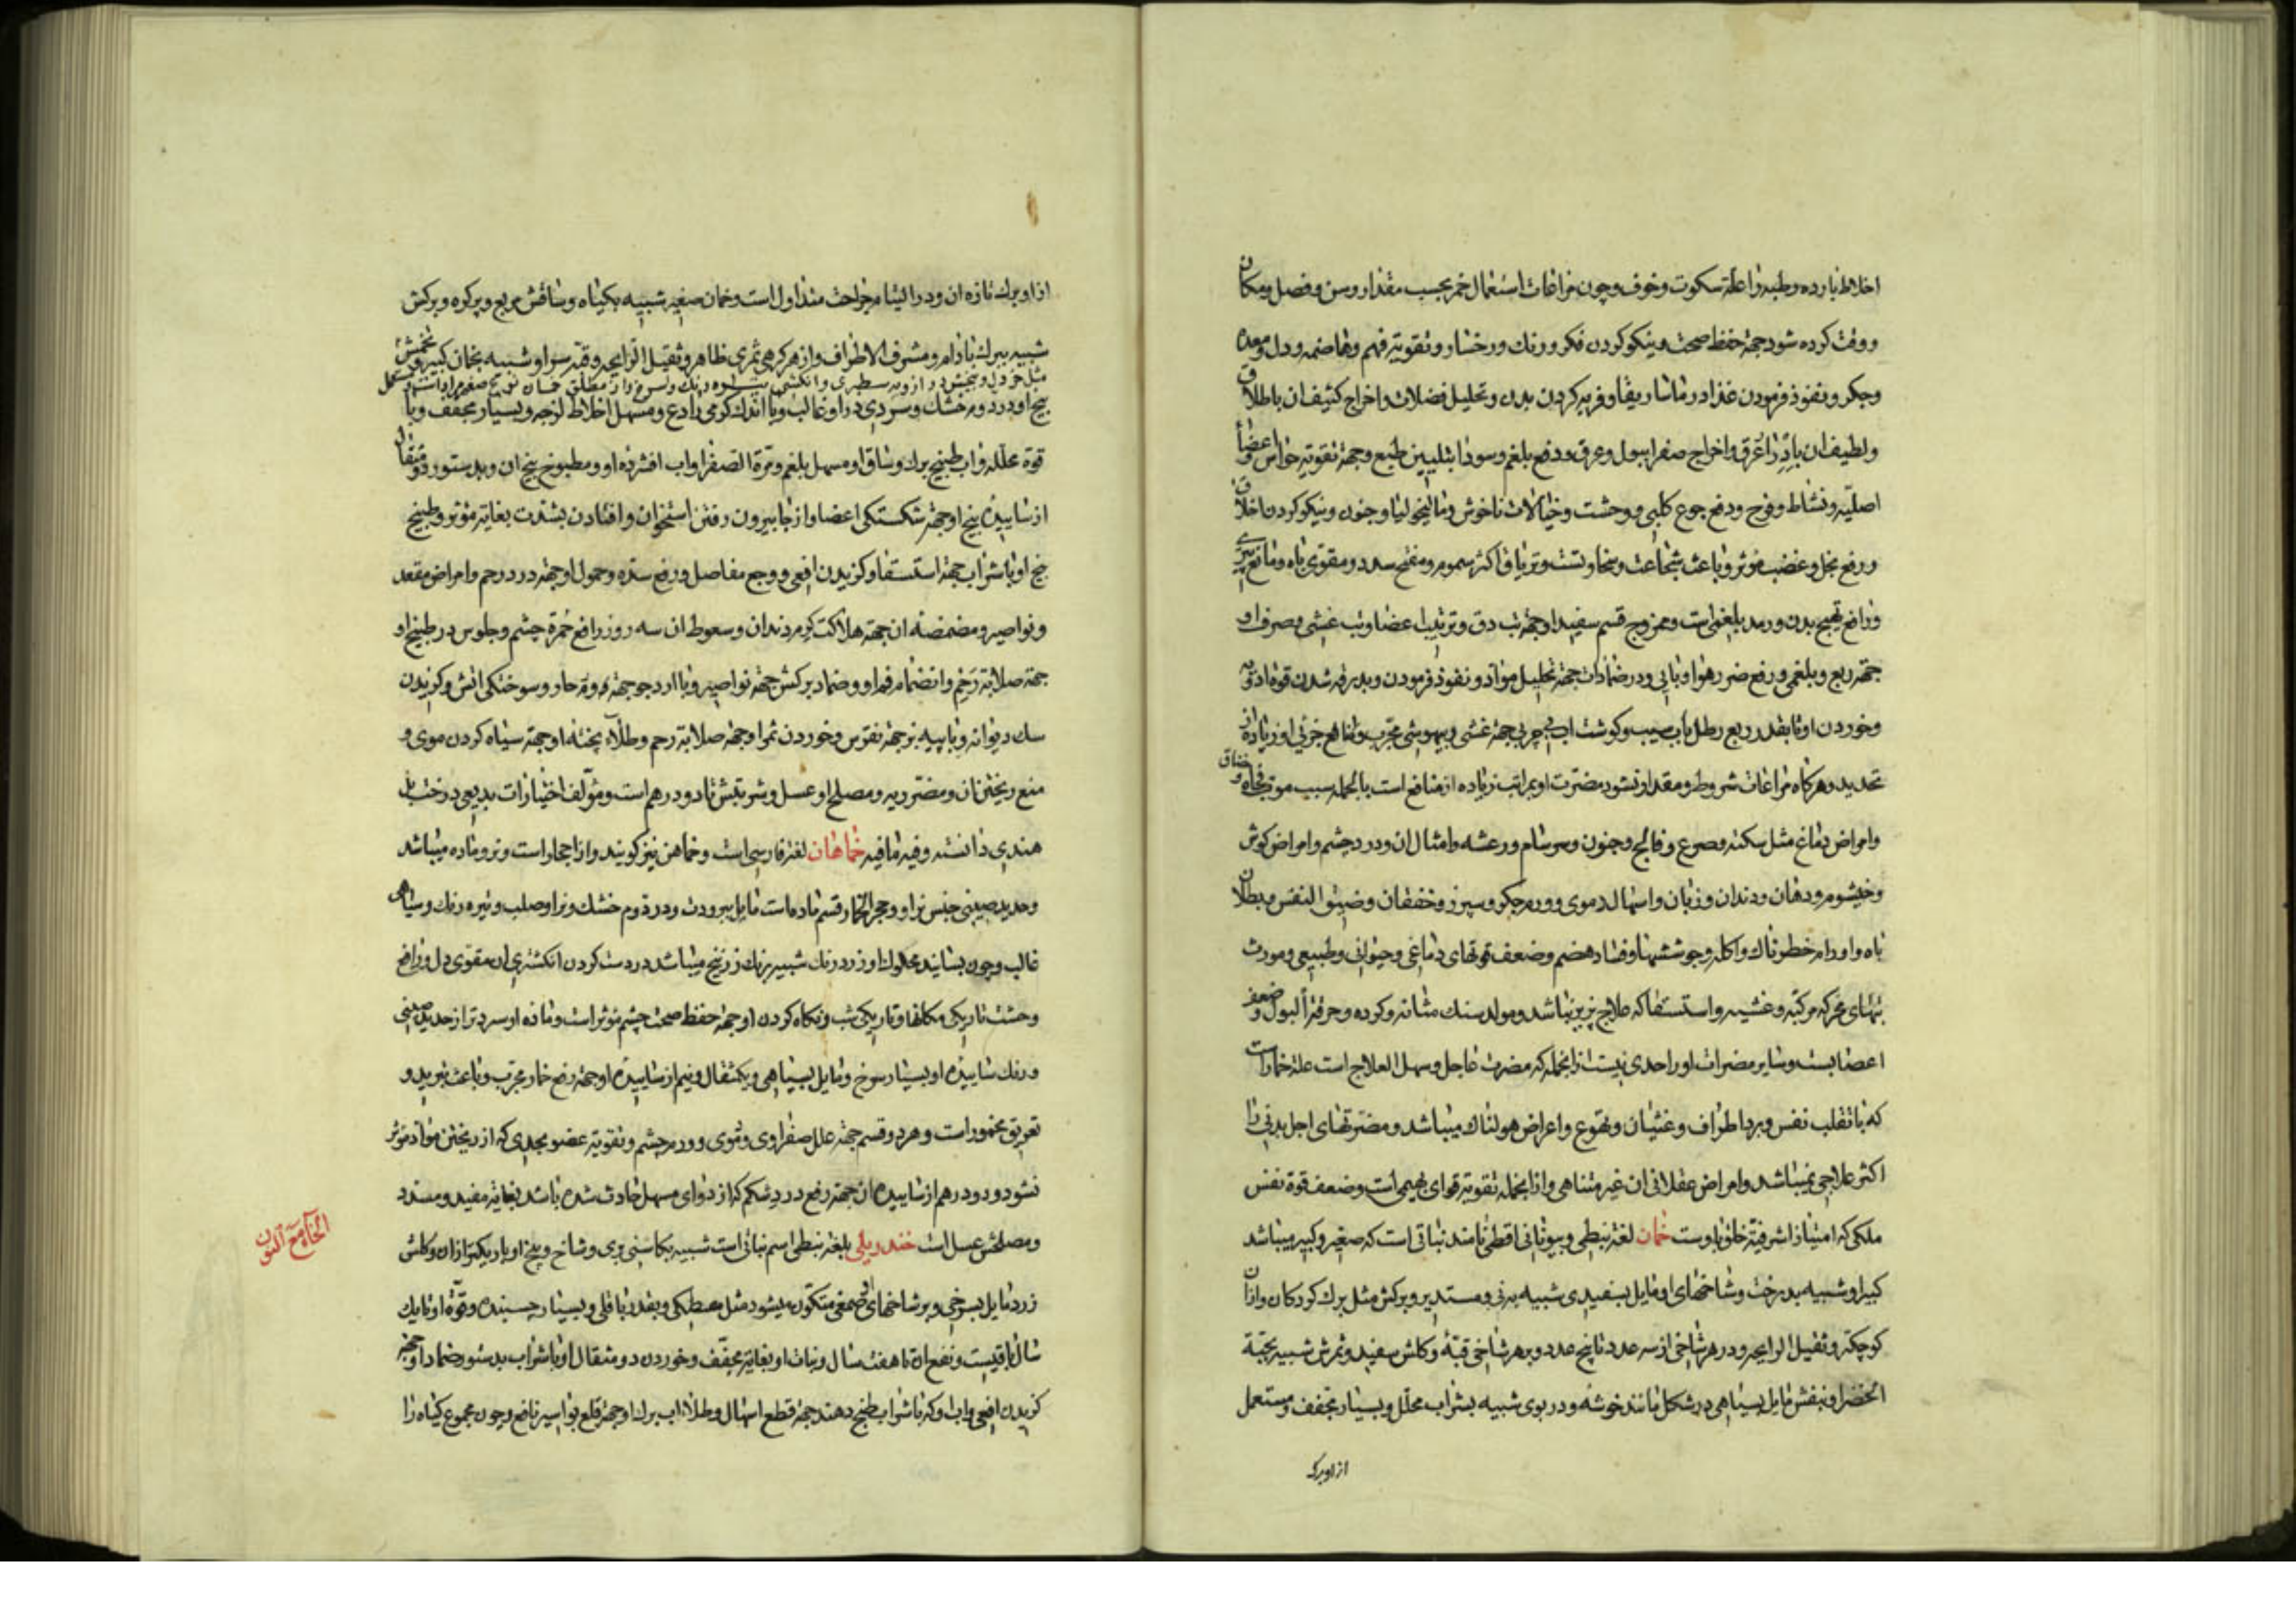 اخلاط بارده رطبه را علة سکوت وخوف وچون مراعات استعمال خمر بحسب مقدار وسن وفصل ومکان
ووقت کرده شود جهة حفظ صحت ونیکو کردن فکر ورنك ورخسار وتقویة فهم وهاضمه ودل ومعده
وجکر وتنفوذ فرمودن غذا در ماساریقا وفربه کردن بدن وتحلیل فضلات واخراج کثیف ان باطلاق
ولطیف ان بادرار عرق واخراج صفرا ببول وعرق ودفع بلغم وسودا بتلیین طبع وجهة تقویة حواس واعضأ
اصلیه ونشاط وفرح ودفع جوع کلبی ووحشت وخیالات ناخوش ومالیخولیا وجنون ونیکو کردن اخلاق
ورفع بخل وغضب مؤثر وباعث شجاعت وسخاوتست وتریاق اکثر سموم ومفتح سدد ومقوی باه ومانع پیری
ورافع تهبج بدن ورمد بلغمی است وممزوج قسم سفید او جهة تب دق وترتیب اعضا وتب غشی وصرف او
جهة ربع وبلغمی ورفع ضرر هوا وبایی ودر ضمادات جهة تحلیل مواد ونفوذ فرمودن وبدرقه شدن قوة ادویه
وخوردن او تا بقدر ربع رطل باب سیب وکوشت اب بی چربی جهة غشی وبیهوشی مجرب ومنافع جزئی او زیاده از
تحدید وهرکاه مراعات شروط ومقدار نشود مضرت او بمراتب زیاده از منافع است بالجمله سبب موت فجاه وخناق
وامراض دماغ مثل سکته وصرع وفالج وجنون وسرسام ورعشه وامثال ان ودرد چشم وامراض کوش
وخیشوم ودهان ودندان وزبان واسهال دموی وورم جکر وسپرز وخفقان وضیق النفس وبطلان
باه واورام خطرناك واکله وجوششها وفساد هضم وضعف قوتهای دماغی وحیوانی وطبیعی ومورث
تبهای محرکه مرکبه وغشیه واستسقا که علاج پزیر نباشد ومولد سنك مثانه وکرده وحرقة البول وضعف
اعضابست وسایر مضرات او را حدی نیست از انجمله که مضرت عاجل وسهل العلاج است علة خمار است
که با تقلب نفس وبرد اطراف وغثیان وتهوع واعراض هولناك میباشد ومضرتهای اجل بدنی را
اکثر علاجی نمیباشد وامراض عقلانی ان غیر متناهی واز انجمله تقویة قوای بهیمی است وضعف قوة نفس
ملکی که امتیاز اشرفیة خلق باوست خمان لغة نبطی وبیونانی اقطی نامند نباتی است که صغیر وکبیر میباشد
کبیر او شبیه بدرخت وشاخهای او مایل بسفیدی شبیه به نی ومستدیر وبرکش مثل برك کردکان وازان
کوچکتر وثقیل الرایحه ودر هر شاخی از سه عدد تا پنج عدد وبر هر شاخی قبه وکلش سفید وثمرش شبیه بحبة
الخضرا وبنفش مایل بسیاهی در شکل مانند خوشه ودر بوی شبیه بشراب محلل وبسیار مجفف ومستعمل
از او برك
از او برك تازه ان ودر التیام جراحت متداول است وخمان صغیر شبیه بکیاه وساقش مربع وپرکره وبرکش
شبیه ببرك بادام ومشرف الاطراف واز هر کرهی ثمری ظاهر وثقیل الرایحه وقبه سر او شبیه بخمان کبیر وتخمش
مثل خردل وبیخش دراز وبه سطبری وانکشتی واز مطلق خمان نوع صغیر مراد است ومستعمل
بیخ او در دوم خشك وسردی در او غالب وبا اندك کرمی رادع ومسهل اخلاط لزجه وبسیار مجفف وبا
قوة محلله واب طبیخ برك وساق او مسهل بلغم ومرة الصفرا واب افشرده او ومطبوخ بیخ ان وبدستور دو مثقال
از سابیده بیخ او جهة شکستکی اعضا واز جا بیرون رفتن استخوان وافتادن بشدت بغایة مؤثر وطبیخ
بیخ او با شراب جهة استسقا وکزیدن افعی ووجع مفاصل ورفع سده وحمول او جهة درد رحم وامراض مقعد
ونواصیر ومضمضه ان جهة هلاکت کرم دندان وسعوط ان سه روز رافع حمرة چشم وجلوس در طبیخ او
جهة صلابة رحم وانضمام فم او وضماد برکش جهة نواصیر وبا ارد جو جهة ورم حار وسوختکی اتش وکزیدن
سك دیوانه وبا پیه بز جهة نقرس وخوردن ثمر او جهة صلابة رحم وطلاء پخته او جهة سیاه کردن موی و
منع ریختن ان ومضر ریه ومصلح او عسل وشربتش تا دو درهم است ومؤلف اختیارات بدیعی درخت بل
هندی دانسته وفیه مافیه خماهان لغة فارسی است وخماهن نیز کویند واز احجار است ونر وماده میباشد
وحدید صینی جنس نر او وحجر الخمار قسم ماده است مایل ببرودت ودر دوم خشك ونر او صلب وتیره رنك وسیاهی
غالب وچون بسایند محکوك او زرد رنك شبیه برنك زرنیخ میباشد در دست کردن انکشتری ان مقوی دل ورافع
وحشت تاریکی مکانها وتاریکی شب ونکاه کردن او جهة حفظ صحت چشم مؤثر است وماده او سردتر از حدید صینی
ورنك ساییده او بسیار سرخ ومایل بسیاهی ویکمثقال ونیم از ساییده او جهة رفع خمار مجرب وباعث نبرید و
تعریق مخمور است وهر دو قسم جهة علل صفراوی ودموی وورم چشم وتقویة عضو بحدی که از ریختن مواد مؤثر
نشود ودو درهم از ساییده ان جهة رفع درد شکم که از دوای مسهل حادث شده باشد بغایة مفید ومسدد
ومصلحش عسل است خندریلی بلغة نبطی اسم نباتی است شبیه بکاسنی بری وشاخ وبیخ او باریکتر ازان وکلش
الخاء مع النون
زرد مایل بسرخی وبر شاخهای او صمغی متکون میشود مثل مصطکی وبقدر باقلی وبسیار چسبنده وقوة او تا یك
سال باقیست ونفع ان تا هفت سال ونبات او بغایة مجفف وخوردن دو مثقال او با شراب بدستور ضماد او جهة
کزیدن افعی واب او که با شراب طبخ دهند جهة قطع اسهال وطلاء اب برك او جهة قلع بواسیر نافع وچون مجموع کیاه را